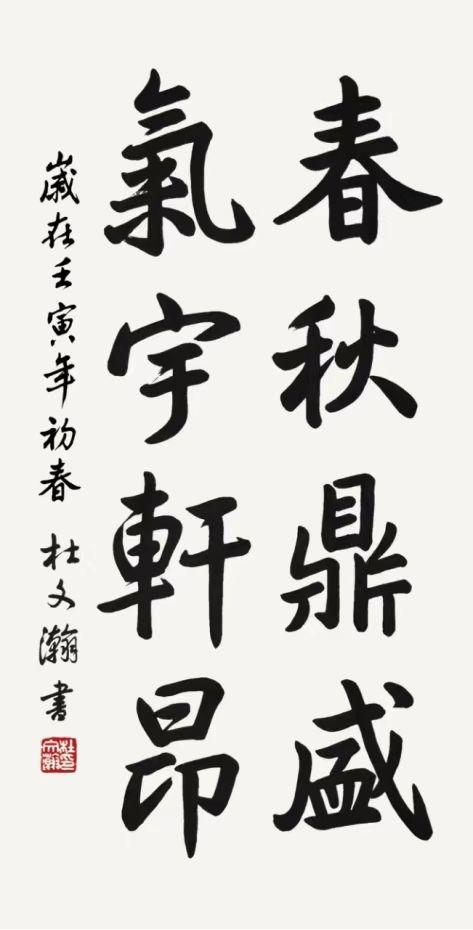 春秋鼎盛
氣宇軒昂
歲在壬寅年初春 杜文瀚書
杜文瀚印